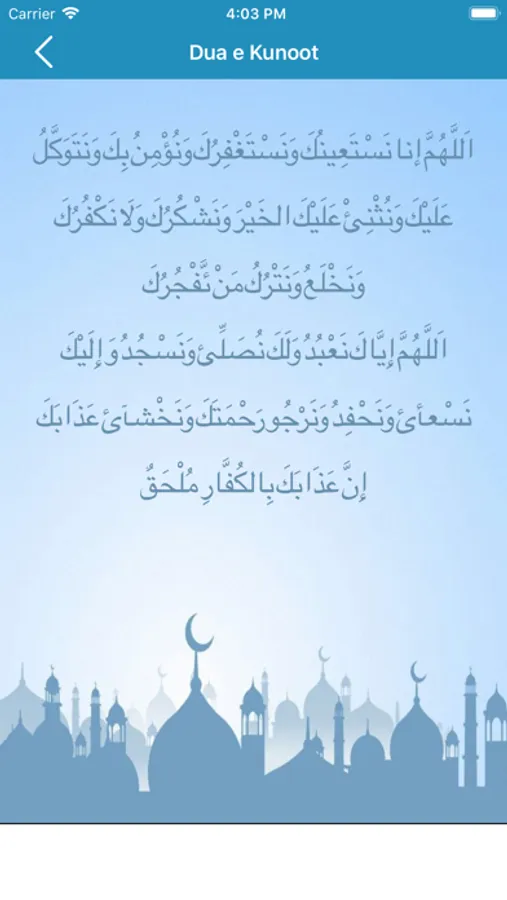 Carrier 4:03 PM
Dua e Kunoot
اَللَّهُمَّ إنا نَسْتَعِينُكَ وَنَسْتَغْفِرُكَ وَنُؤْمِنُ بِكَ وَنَتَوَكَّلُ
عَلَيْكَ وَنُثْنِئْ عَلَيْكَ الخَيْرَ وَنَشْكُرُكَ وَلَا نَكْفُرُكَ
وَنَخْلَعُ وَنَتْرُكُ مَنْ ئَّفْجُرُكَ
اَللَّهُمَّ إِيَّاكَ نَعْبُدُ وَلَكَ نُصَلِّئ وَنَسْجُدُ وَإِلَيْكَ
نَسْعأئ وَنَحْفِدُ وَنَرْجُو رَحْمَتَكَ وَنَخْشآئ عَذَابَكَ
إِنَّ عَذَابَكَ بِالكُفَّارِ مُلْحَقٌ